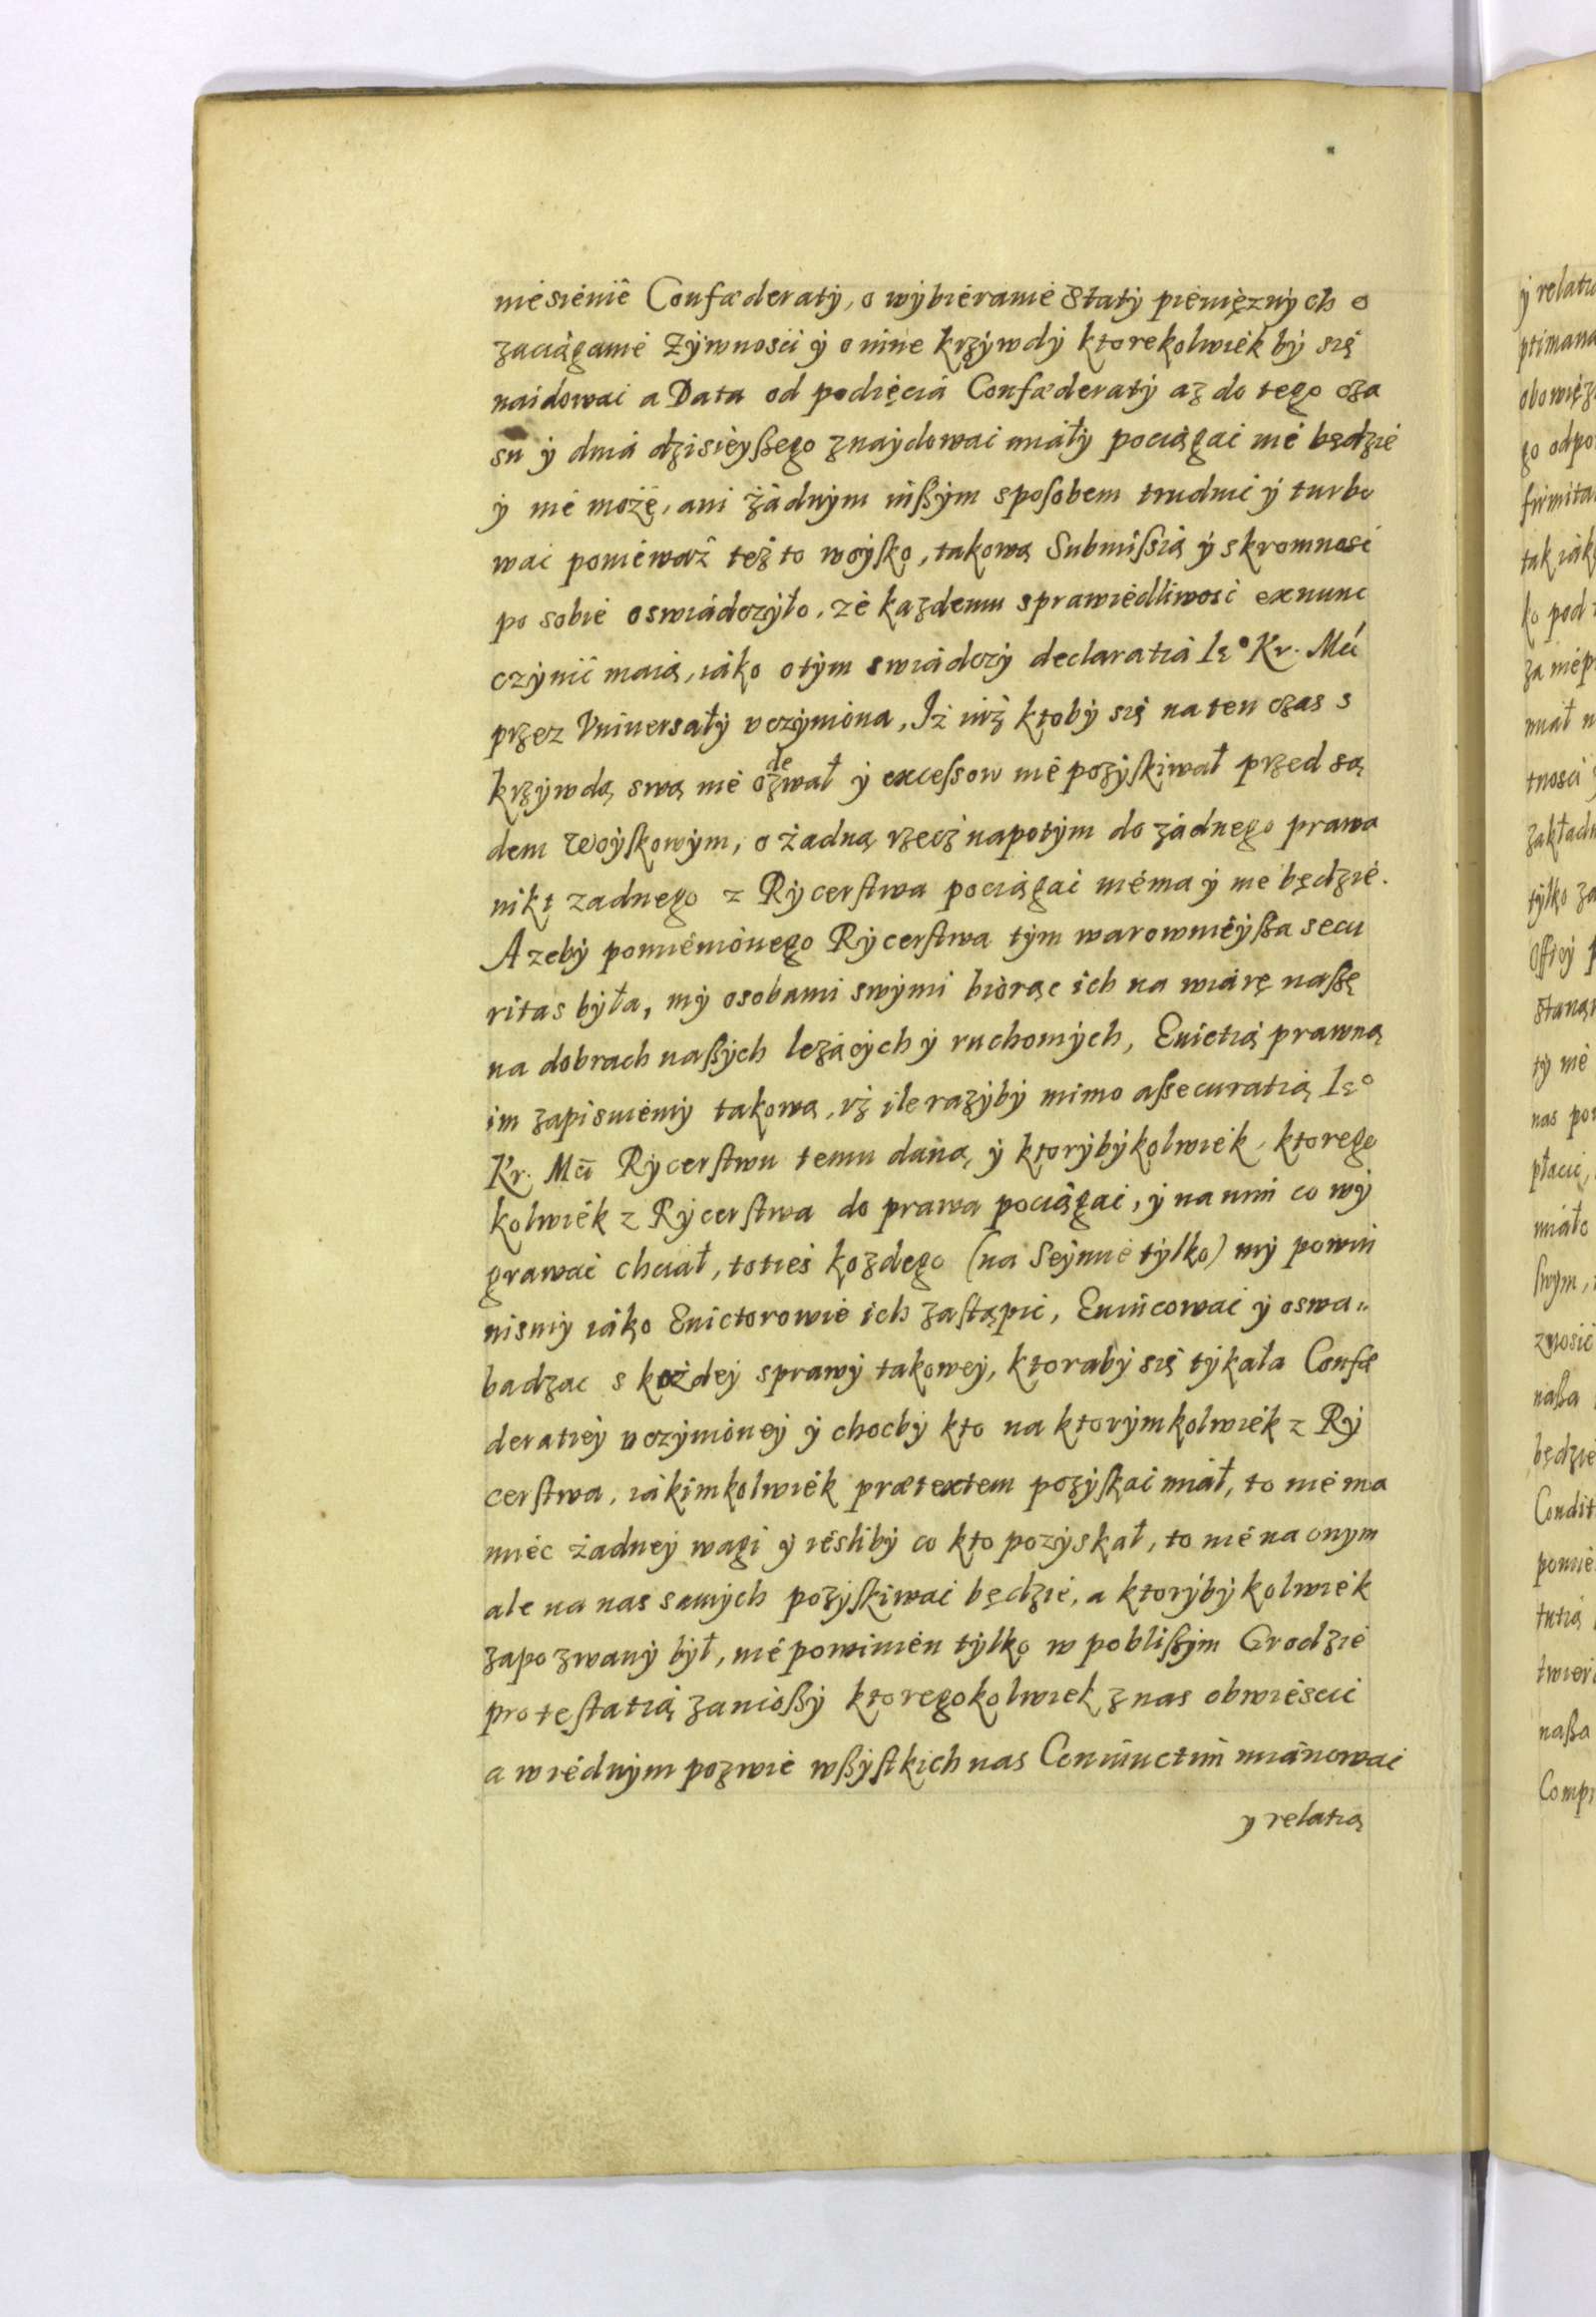 niesienie Confæderaty, o wybieranie Staty pieniężnych o
zaciąganie Żywnosci y o inne krzywdy ktorekolwiek by się
naidowac a Data od podięcia Confæderaty az do tego cza
su y dnia dzisieyßego znaydowac miały pociągac nie będzie
y nie może, ani żadnym inßym sposobem trudnic y turbo
wac ponieważ też to woysko, takową Submissią y skromnosc
po sobie oswiadczyło, że kazdemu sprawiedliwosc exnunc
czynic maią, iako otym swiadczy declaratia Ie° Kr. Mci
przez Vniversały vczyniona, Iż iuż ktoby się na ten czas s
krzywdą swą nie odezwał y excessow nie pozyskiwał przed są
dem Woyskowym, o żadną rzecz napotym do żadnego prawa
nikt zadnego z Rycerstwa pociągac niema y nie będzie.
A zeby pomienionego Rycerstwa tym warownieyßa secu
ritas była, my osobami swymi biorąc ich na wiarę naßę
na dobrach naßych leżących y ruchomych, Euictią prawną
im zapisuiemy takową, iż ile razyby mimo assecuratią Ie°
Kr. Mci Rycerstwu temu daną y ktorybykolwiek, ktorego
kolwiek z Rycerstwa do prawa pociągac, y na nim co wy
grawac chciał, toties kozdego (na Seymie tylko) my powin
nismy iako Euictorowie ich zastąpic, Euincowac y oswa„
badzac s każdey sprawy takowey, ktoraby się tykała Confæ
deratiey vczynioney y chocby kto na ktorymkolwiek z Ry
cerstwa, iakimkolwiek prætextem pozyskac miał, to nie ma
miec żadney wagi y iesliby co kto pozyskał, to nie na onym
ale na nas samych pozyskiwac będzie, a ktorybykolwiek
zapozwany był, nie powinien tylko w poblißym Grodzie
protestatią zaniosßy ktoregokolwiek z nas obwiescic
a w iednym pozwie wßystkich nas Coniunctim mianowac
y relatią